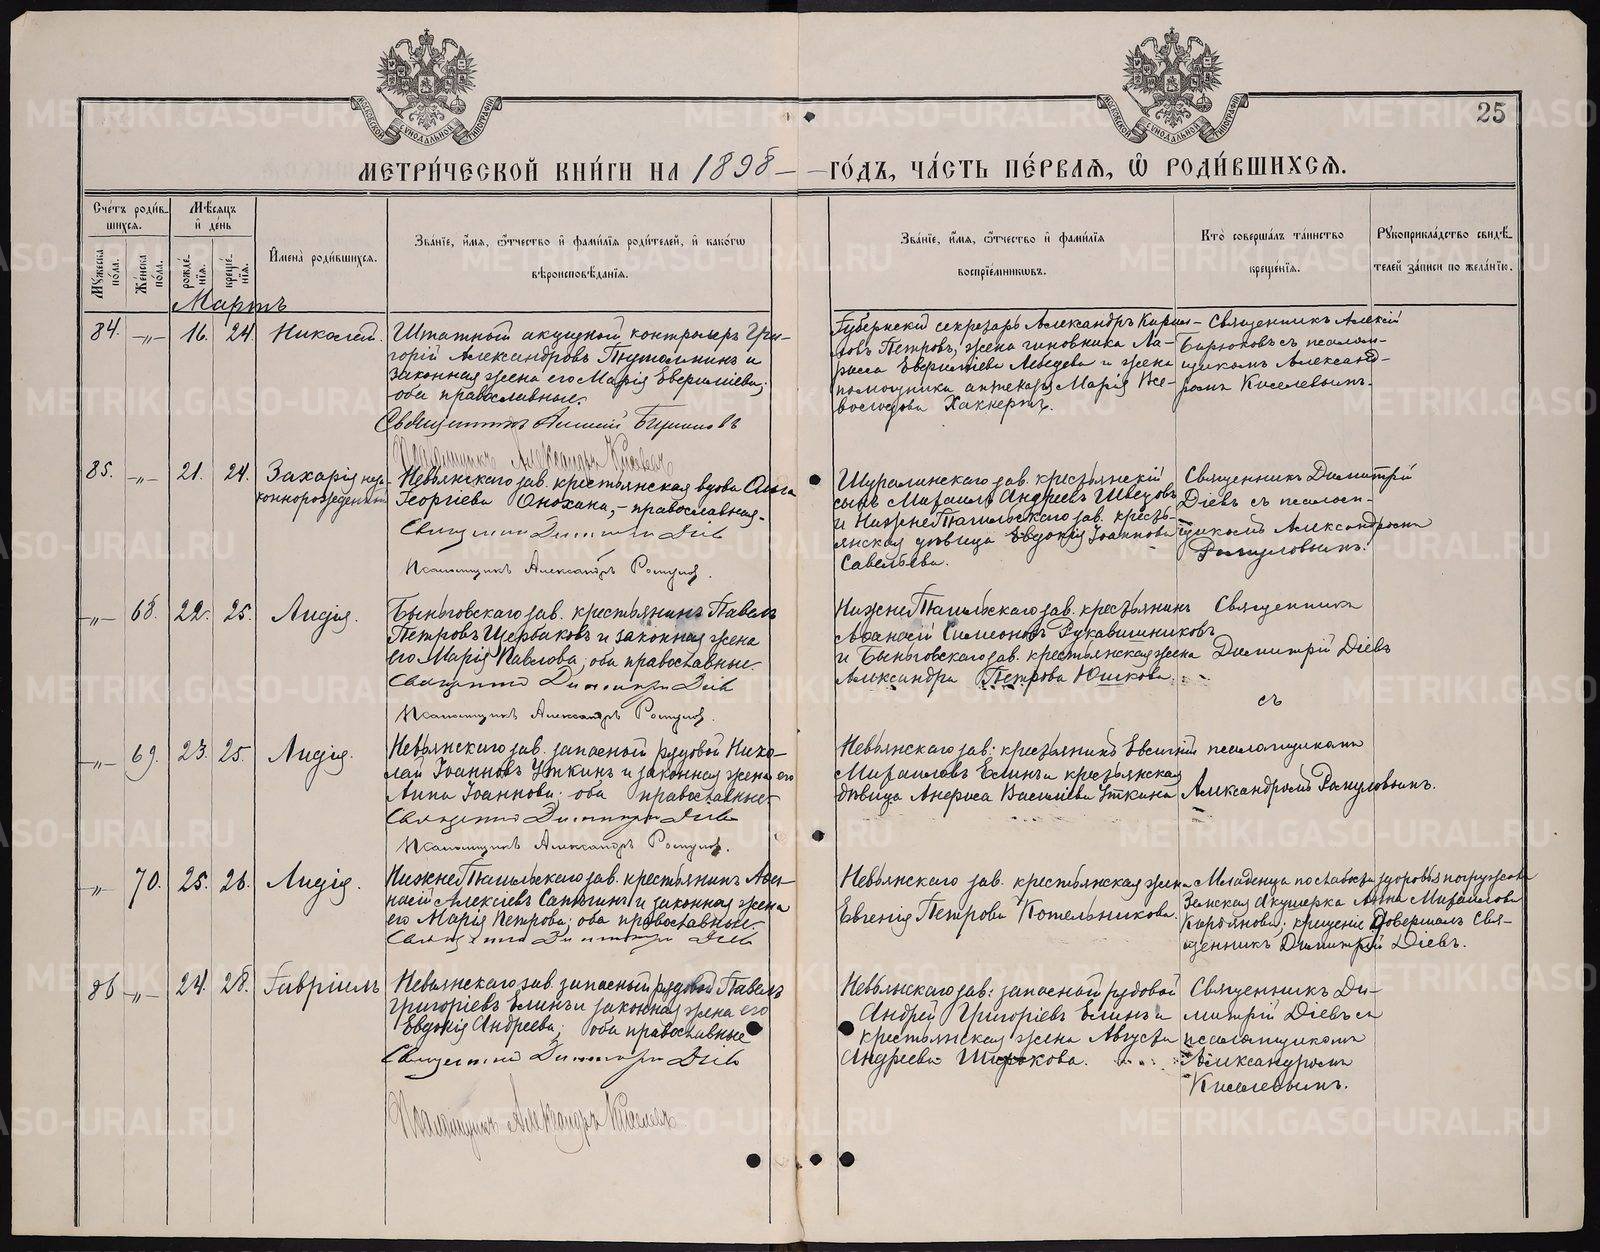 25
МЕТРИ́ЧЕСКОЙ КНИ́ГИ НА 1898 ГО́ДЪ, ЧА́СТЬ ПЕ́РВАЯ, Ѡ҆ РОДИ́ВШИХСЯ.
Сче́тъ роди́в-
шихся.
Мꙋжеска пола.
Же́нска пола.
Мѣ́сяцъ
и҆ де́нь
рожде́-
нїя.
креще́-
нїя.
И҆мена̀ роди́вшихся.
Зва́нїе, и҆́мя, ѻ҆́тчество и҆ фами́лїя роди́телей, и҆ како́гѡ
вѣроисповѣ́данїя.
Зва́нїе, и҆́мя, ѻ҆́тчество и҆ фами́лїя
воспрїе́мниковъ.
Кто̀ соверша́лъ та́инство
креще́нїя.
Рꙋкоприкла́дство свидѣ́-
телей за́писи по жела́нїю.
Мартъ
84. —„— 16. 24. Николай.
Штатной акцизной контролеръ Гри-
горій Александровъ и
законная жена его Марія
оба православные.
Священникъ Алексій Бирюковъ
Псаломщикъ Александръ Киселевъ
Губернскій секретарь Александръ Кирил-
ловъ Петровъ, жена чиновника Ла-
рисса Лебедева и жена
помощника аптекаря Марія Все-
володова
Священникъ Алексій
Бирюковъ съ псалом-
щикомъ Александ-
ромъ Киселевымъ.
85. —„— 21. 24. Захарія неза-
коннорожденный
Невьянскаго зав. крестьянская вдова Ольга
Георгіева — православная.
Священникъ Димитрій Діевъ
Псаломщикъ Александръ
Шуралинскаго зав. крестьянскій
сынъ Михаилъ Андреевъ Швецовъ
и НижнеТагильскаго зав. кресть-
янская дѣвица Евдокія Іоаннова
Савельева.
Священникъ Димитрій
Діевъ съ псалом-
щикомъ Александромъ
—„— 68. 22. 25. Лидія.
Быньговскаго зав. крестьянинъ Павелъ
Петровъ Щербаковъ и законная жена
его Марія Павлова, оба православные.
Священникъ Димитрій Діевъ
Псаломщикъ Александръ
НижнеТагильскаго зав. крестьянинъ
Афанасій Симеоновъ Рукавишниковъ
и Быньговскаго зав. крестьянская жена
Александра Петрова Юшкова.
Священникъ
Димитрій Діевъ
съ
—„— 69. 23. 25. Лидія.
Невьянскаго зав. запасной рядовой Нико-
лай Іоанновъ Уткинъ и законная жена его
Анна Іоаннова; оба православные.
Священникъ Димитрій Діевъ
Псаломщикъ Александръ
Невьянскаго зав: крестьянинъ Евсигній
Михаиловъ Елинъ и крестьянская
дѣвица Анфиса Василіева Уткина
псаломщикомъ
Александромъ
—„— 70. 25. 26. Лидія.
НижнеТагильскаго зав. крестьянинъ Афа-
насій Алексіевъ Сапогинъ и законная жена
его Марія Петрова; оба православные.
Священникъ Димитрій Діевъ
Невьянскаго зав. крестьянская жена
Евгенія Петрова Котельникова.
Младенца по слабости здоровья погружала
Земская Акушерка Анна Михаилова
крещеніе довершалъ Свя-
щенникъ Димитрій Діевъ.
86 —„— 24. 28. Гавріилъ
Невьянскаго зав. запасный рядовой Павелъ
Григоріевъ Елинъ и законная жена его
Евдокія Андреева; оба православные
Священникъ Димитрій Діевъ
Псаломщикъ Александръ Киселевъ
Невьянскаго зав: запасной рядовой
Андрей Григоріевъ Елинъ и
крестьянская жена Августа
Андреева Широкова.
Священникъ Ди-
митрій Діевъ съ
псаломщикомъ
Александромъ
Киселевымъ.
METRIKI.GASO-URAL.RU